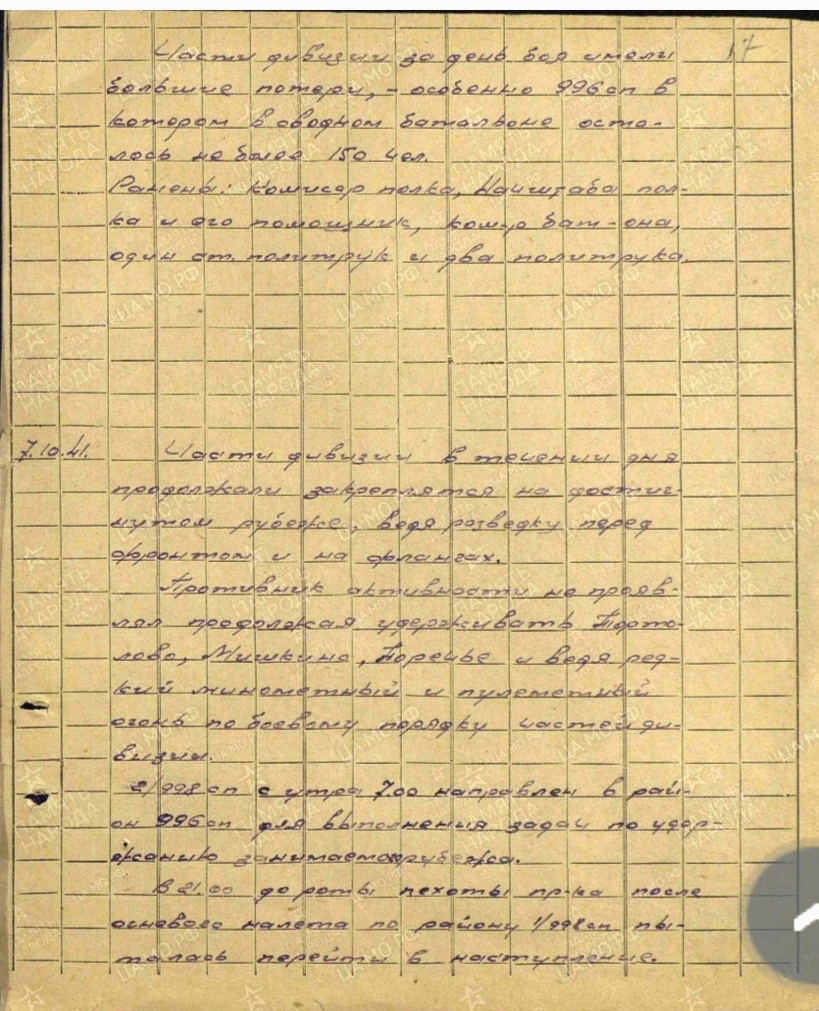 17
Части дивизии за день боя имели
большие потери, - особенно 996 сп в
котором в сводном батальоне оста-
лось не более 150 чел.
Ранены: комисар полка, Начштаба пол-
ка и его помощник, ком-р бат-она,
один ст. политрук и два политрука.
7.10.41. Части дивизии в течении дня
продолжали закреплятся на достиг-
нутом рубеже, ведя розведку перед
фронтом и на флангах.
Противник активности не прояв-
лял продолжая удерживать Порто-
лово, Мишкино, Поречье и ведя ред-
кий минометный и пулеметный
огонь по боевому порядку частей ди-
визии.
2/998 сп с утра 7.00 направлен в рай-
он 996 сп для выполнения задач по удер-
жанию занимаемого рубежа.
В 21.00 до роты пехоты пр-ка после
огневого налета по району 1/998 сп пы-
талась перейти в наступление.
ПАМЯТЬ НАРОДА
ЦАМО.РФ